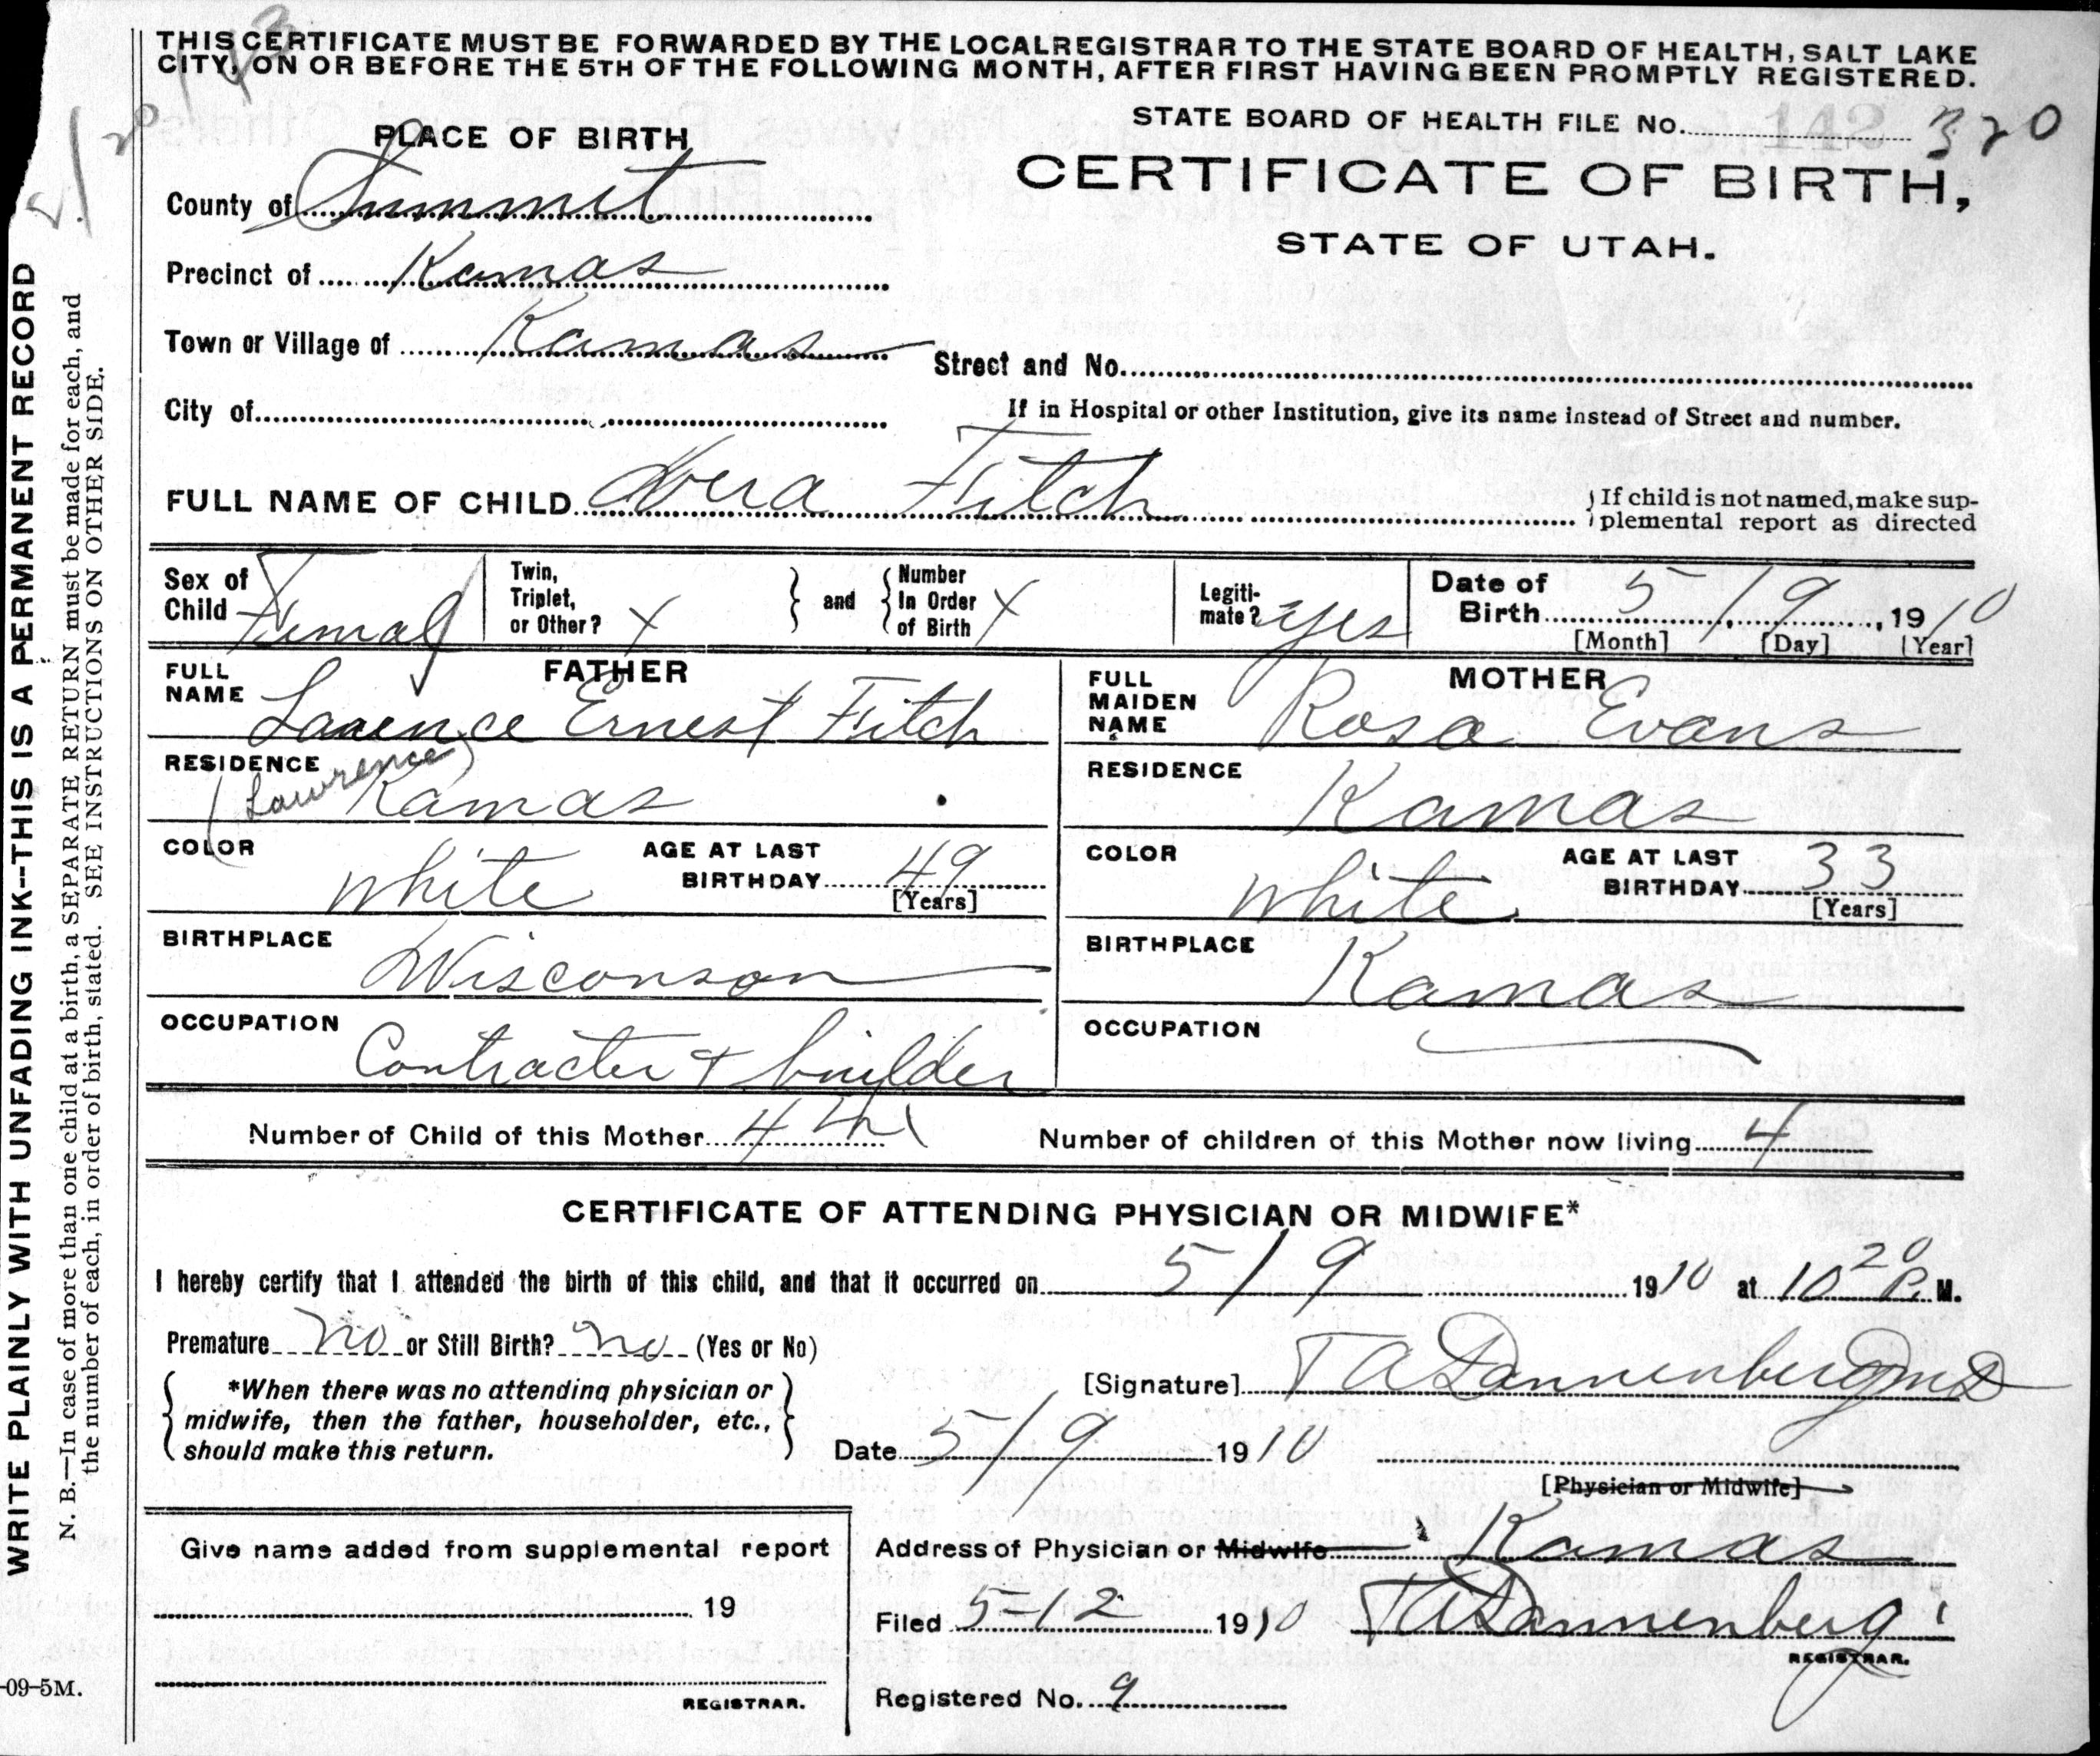 THIS CERTIFICATE MUST BE FORWARDED BY THE LOCAL REGISTRAR TO THE STATE BOARD OF HEALTH, SALT LAKE
CITY, ON OR BEFORE THE 5TH OF THE FOLLOWING MONTH, AFTER FIRST HAVING BEEN PROMPTLY REGISTERED.
STATE BOARD OF HEALTH FILE No. 142 320
PLACE OF BIRTH
CERTIFICATE OF BIRTH,
STATE OF UTAH.
County of Summit
Precinct of Kamas
Town or Village of Kamas
Street and No.
City of
If in Hospital or other Institution, give its name instead of Street and number.
FULL NAME OF CHILD Vera Fitch
If child is not named, make sup-
plemental report as directed
Sex of Child Femal
Twin, Triplet, or Other? X
and
Number In Order of Birth X
Legiti-mate? yes
Date of Birth 5/9, 1910
[Month] [Day] [Year]
FATHER
FULL NAME Larence Ernest Fitch
(Lawrence)
RESIDENCE Kamas
COLOR white
AGE AT LAST BIRTHDAY 49
[Years]
BIRTHPLACE Wisconson
OCCUPATION Contracter & builder
MOTHER
FULL MAIDEN NAME Rosa Evans
RESIDENCE Kamas
COLOR white
AGE AT LAST BIRTHDAY 33
[Years]
BIRTHPLACE Kamas
OCCUPATION
Number of Child of this Mother 4th
Number of children of this Mother now living 4
CERTIFICATE OF ATTENDING PHYSICIAN OR MIDWIFE*
I hereby certify that I attended the birth of this child, and that it occurred on 5/9 1910 at 10 20 P. M.
Premature no or Still Birth? no (Yes or No)
*When there was no attending physician or
midwife, then the father, householder, etc.,
should make this return.
[Signature] T A Dannenberg MD
Date 5/9 1910
[Physician or Midwife]
Address of Physician or Midwife Kamas
Filed 5-12 1910 T A Dannenberg
REGISTRAR.
Registered No. 9
Give name added from supplemental report
19
REGISTRAR.
WRITE PLAINLY WITH UNFADING INK--THIS IS A PERMANENT RECORD
N. B.—In case of more than one child at a birth, a SEPARATE RETURN must be made for each, and
the number of each, in order of birth, stated. SEE INSTRUCTIONS ON OTHER SIDE.
-09-5M.